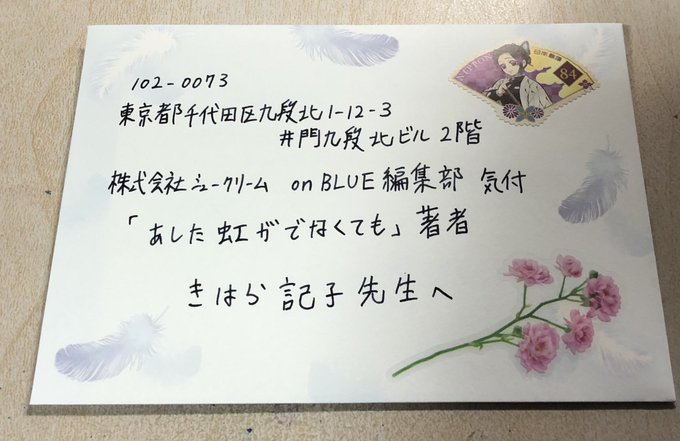 102-0073
東京都千代田区九段北1-12-3
井門九段北ビル 2階
株式会社シュークリーム onBLUE編集部 気付
「あした虹がでなくても」著者
きはら記子先生へ
日本郵便
84
NIPPON